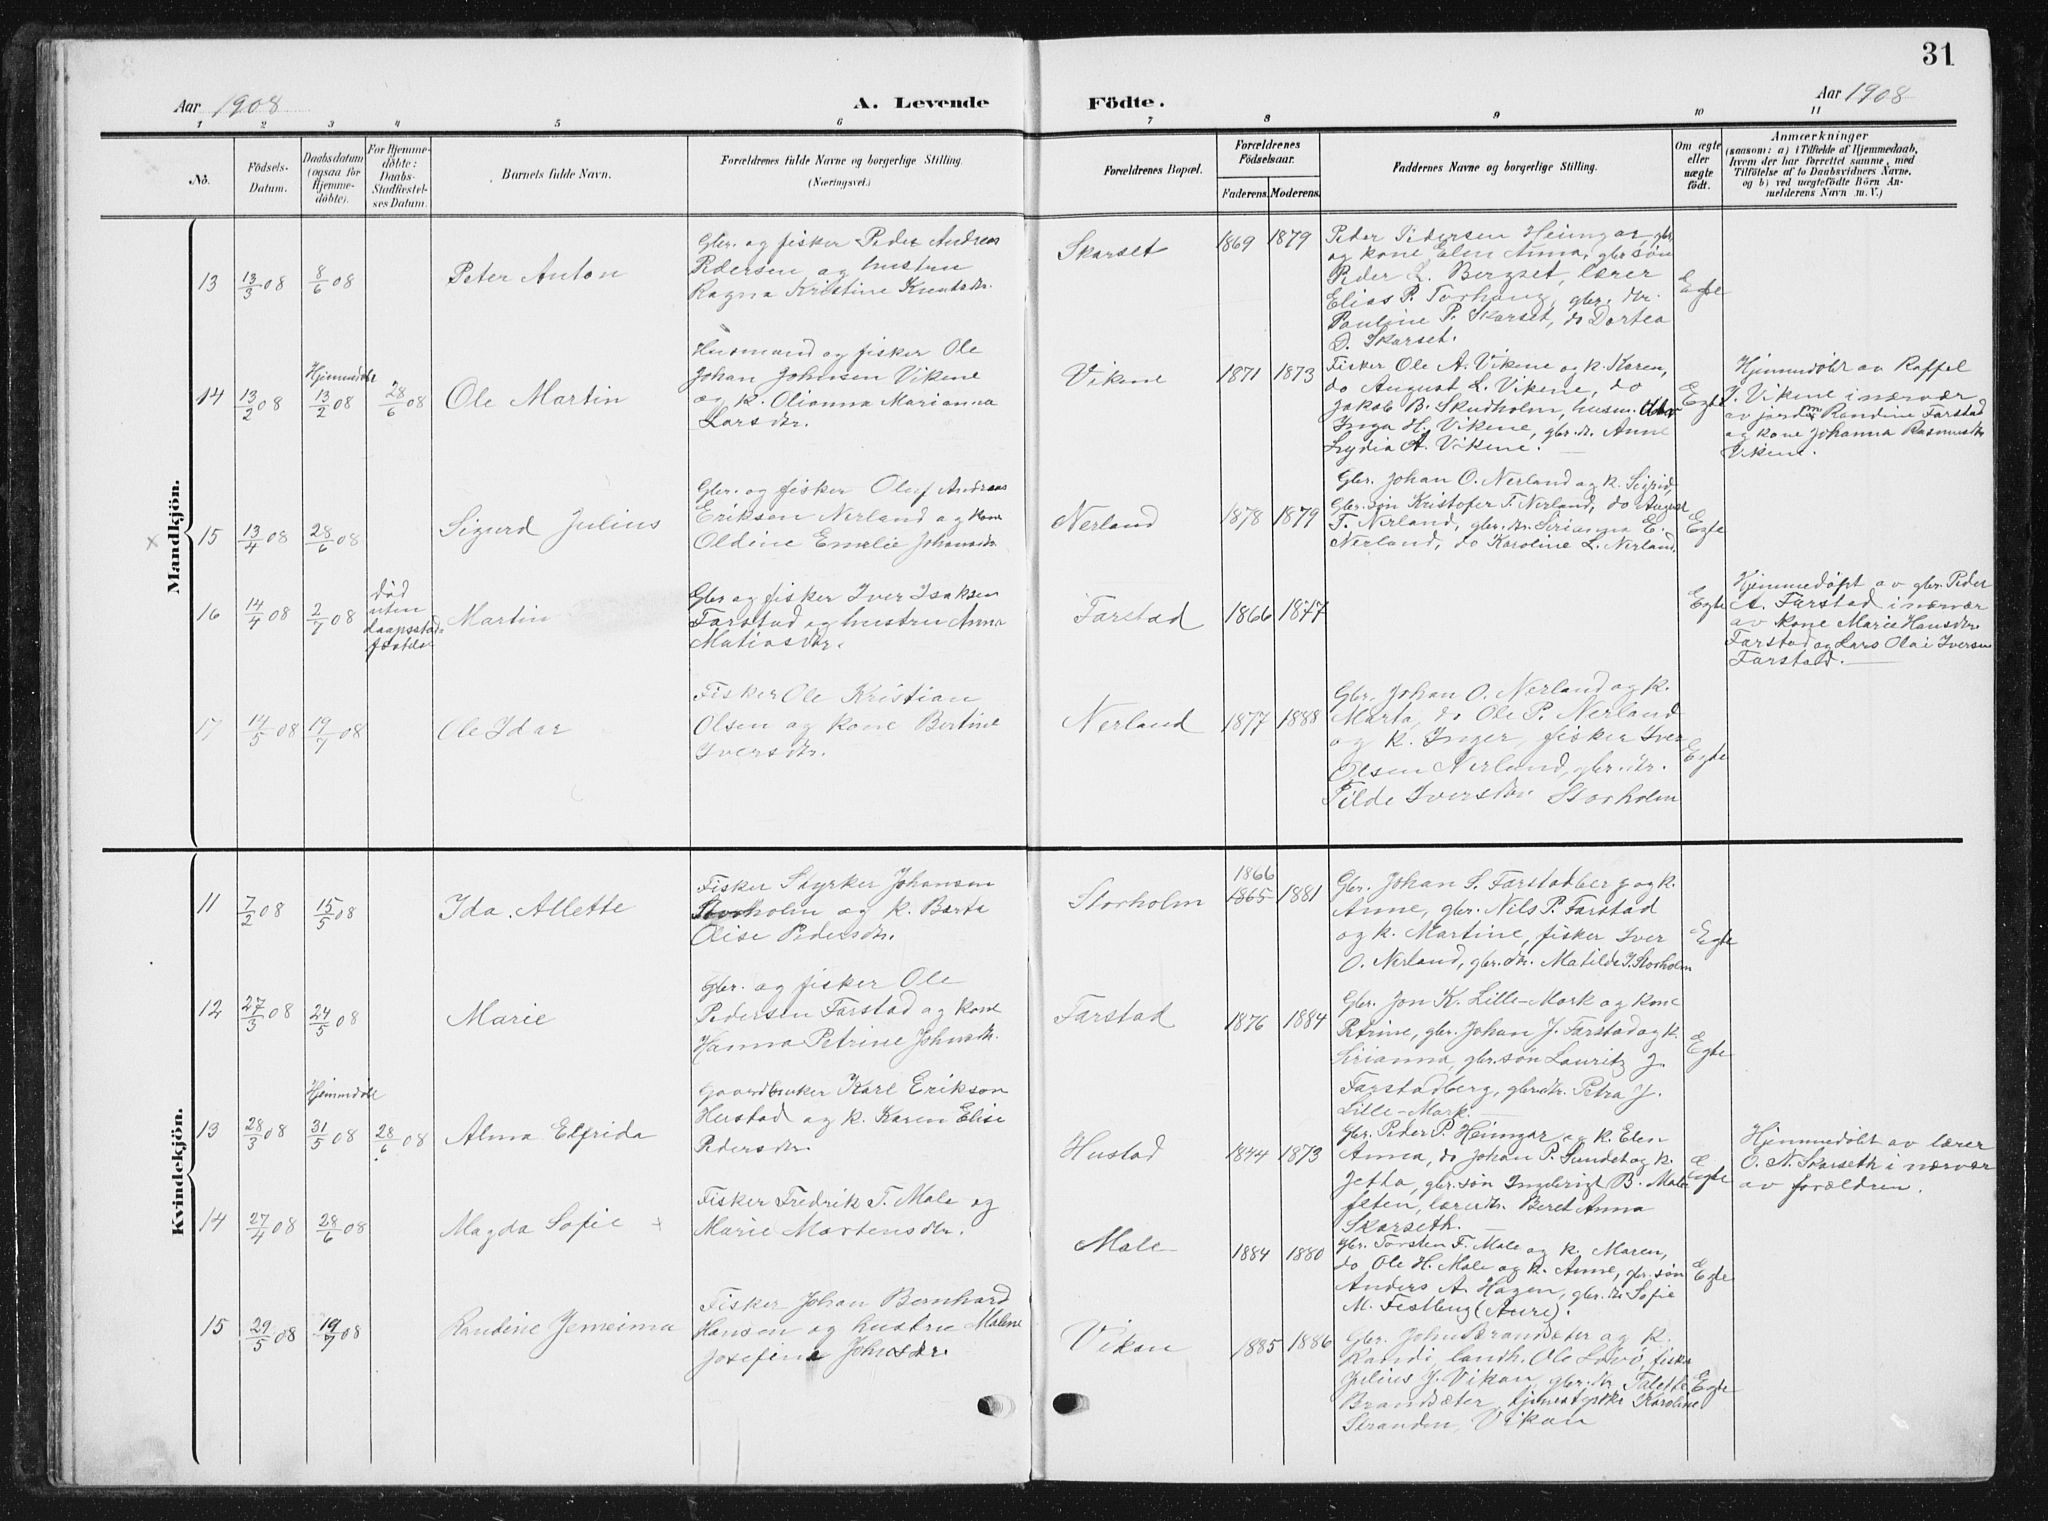 31
Aar 1908
A. Levende
Födte.
Aar 1908
1 2 3 4 5 6 7 8 9 10 11
No.
Födsels-
Datum.
Daabsdatum
(ogsaa for
Hjemme-
døbte).
For Hjemme-
døbte:
Daabs-
Stadfæstel-
ses Datum.
Barnets fulde Navn.
Forældrenes fulde Navne og borgerlige Stilling.
(Næringsvei.)
Forældrenes Bopæl.
Forældrenes
Födselsaar.
Faderens. Moderens.
Faddernes Navne og borgerlige Stilling.
Om ægte
eller
uægte
født.
Anmærkninger
(saasom: a) i Tilfælde af Hjemmedaab,
hvem der har forrettet samme, med
Tilføielse af to Daabsvidners Navne,
og b) ved uægtefödte Börn An-
melderens Navn m. V.)
Mandkjön.
13
13/3 08
8/6 08
Peter Anton
Gbr. og fisker Peder Andreas
Pedersen og hustru
Ragna Kristine Knutsdtr.
Skarset
1869 1879
Peder Pedersen Heimgar, gbr.
og kone Elen Anna, gbr. søn
Peder L. Bergset, lærer
Elias P. Torhaug, gbr. dtr.
Pauline P. Skarset, do Dortea
D. Skarset.
Egte
14
13/2 08
Hjemmedøbt
13/2 08
28/6 08
Ole Martin
Husmand og fisker Ole
Johan Johnsen Vikene
og k. Olianna Marianna
Larsdtr.
Vikene
1871 1873
Fisker Ole A. Vikene og k. Karen,
do August L. Vikene, do
Jakob B. Skudholm, husm.
Inga H. Vikene, gbr. dr. Anne
Lydia A. Vikene.
Egte
Hjemmedøbt av Raffel
J. Vikene i nærvær
av jordm. Randine Farstad
og kone Johanna Rasmusdtr
Vikene.
x 15
13/4 08
28/6 08
Sigurd Julius
Gbr. og fisker Oluf Andreas
Eriksen Nerland og kone
Oldine Emelie Johansdtr.
Nerland
1878 1879
Gbr. Johan O. Nerland og k. Sigrid,
Gbr. søn Kristofer T. Nerland, do August
T. Nerland, gbr. dtr. Serianna E.
Nerland, do Karoline L. Nerland.
Egte
16
14/4 08
2/7 08
død
uten
daapsstad-
fæstelse
Martin
Gbr og fisker Iver Isaksen
Farstad og hustru Anna
Matiasdtr.
Farstad
1866 1877
Egte
Hjemmedøpt av gbr. Peder
A. Farstad i nærvær
av kone Marie Hansdtr
Farstad og Lars Olai Iversen
Farstad.
17
14/5 08
19/7 08
Ole Idar
Fisker Ole Kristian
Olsen og kone Bertine
Iversdtr.
Nerland
1877 1888
Gbr. Johan O. Nerland og k.
Marta, do Ole P. Nerland
og k. Inger, fisker Iver
Olsen Nerland, gbr. dtr.
Tilde Iversdtr Storholm
Egte
Kvindekjön.
11
7/2 08
15/5 08
Ida Allette
Fisker Styrker Johansen
Storholm og k. Berta
Olise Pedersdtr.
Storholm
1866
1865 1881
Gbr. Johan S. Farstadberg og k.
Anne, gbr. Nils P. Farstad
og k. Martine, fisker Iver
O. Nerland, gbr. dtr. Matilde I. Storholm
Egte
12
27/3 08
24/5 08
Marie
Gbr. og fisker Ole
Pedersen Farstad og kone
Hanna Petrine Johnsdtr.
Farstad
1876 1884
Gbr. Jon K. Lille-Mork og kone
Petrine, gbr. Johan J. Farstad og k.
Serianna, gbr. søn Lauritz J.
Farstadberg, gbr. dtr. Petra J.
Lille-Mork.
Egte
13
28/3 08
Hjemmedøbt
31/5 08
28/6 08
Alma Elfrida
Gaardbruker Karl Erikson
Hustad og k. Karen Elise
Pedersdtr.
Hustad
1844 1873
Gbr. Peder P. Heimgar og k. Elen
Anna, do Johan P. Sundet og k.
Jetta, gbr. søn Ingebrigt B. Male-
feten, lærerdtr. Beret Anna
Skarseth.
Egte
Hjemmedøbt av lærer
O. N. Skarseth i nærvær
av forældren.
14
27/4 08
28/6 08
Magda Sofie
Fisker Fredrik T. Male og
Marie Mortensdtr.
Male
1884 1880
Gbr. Torsten F. Male og k. Maren,
do Ole H. Male og k. Anne, gbr. søn
Anders A. Hagen, gbr. dtr Sofie
M. Festbug (Aure).
Egte
15
29/5 08
19/7 08
Randine Jemeima
Fisker Johan Bernhard
Hansen og hustru Malene
Josefine Johnsdtr.
Vikan
1885 1886
Gbr. John Strandsæter og k.
Randi, landh. Ole Lovø, fisker
Julius J. Vikan, gbr. dtr. Talette
Brandsæter, tjenestepike Karoline
Stranden, Vikan
Egte